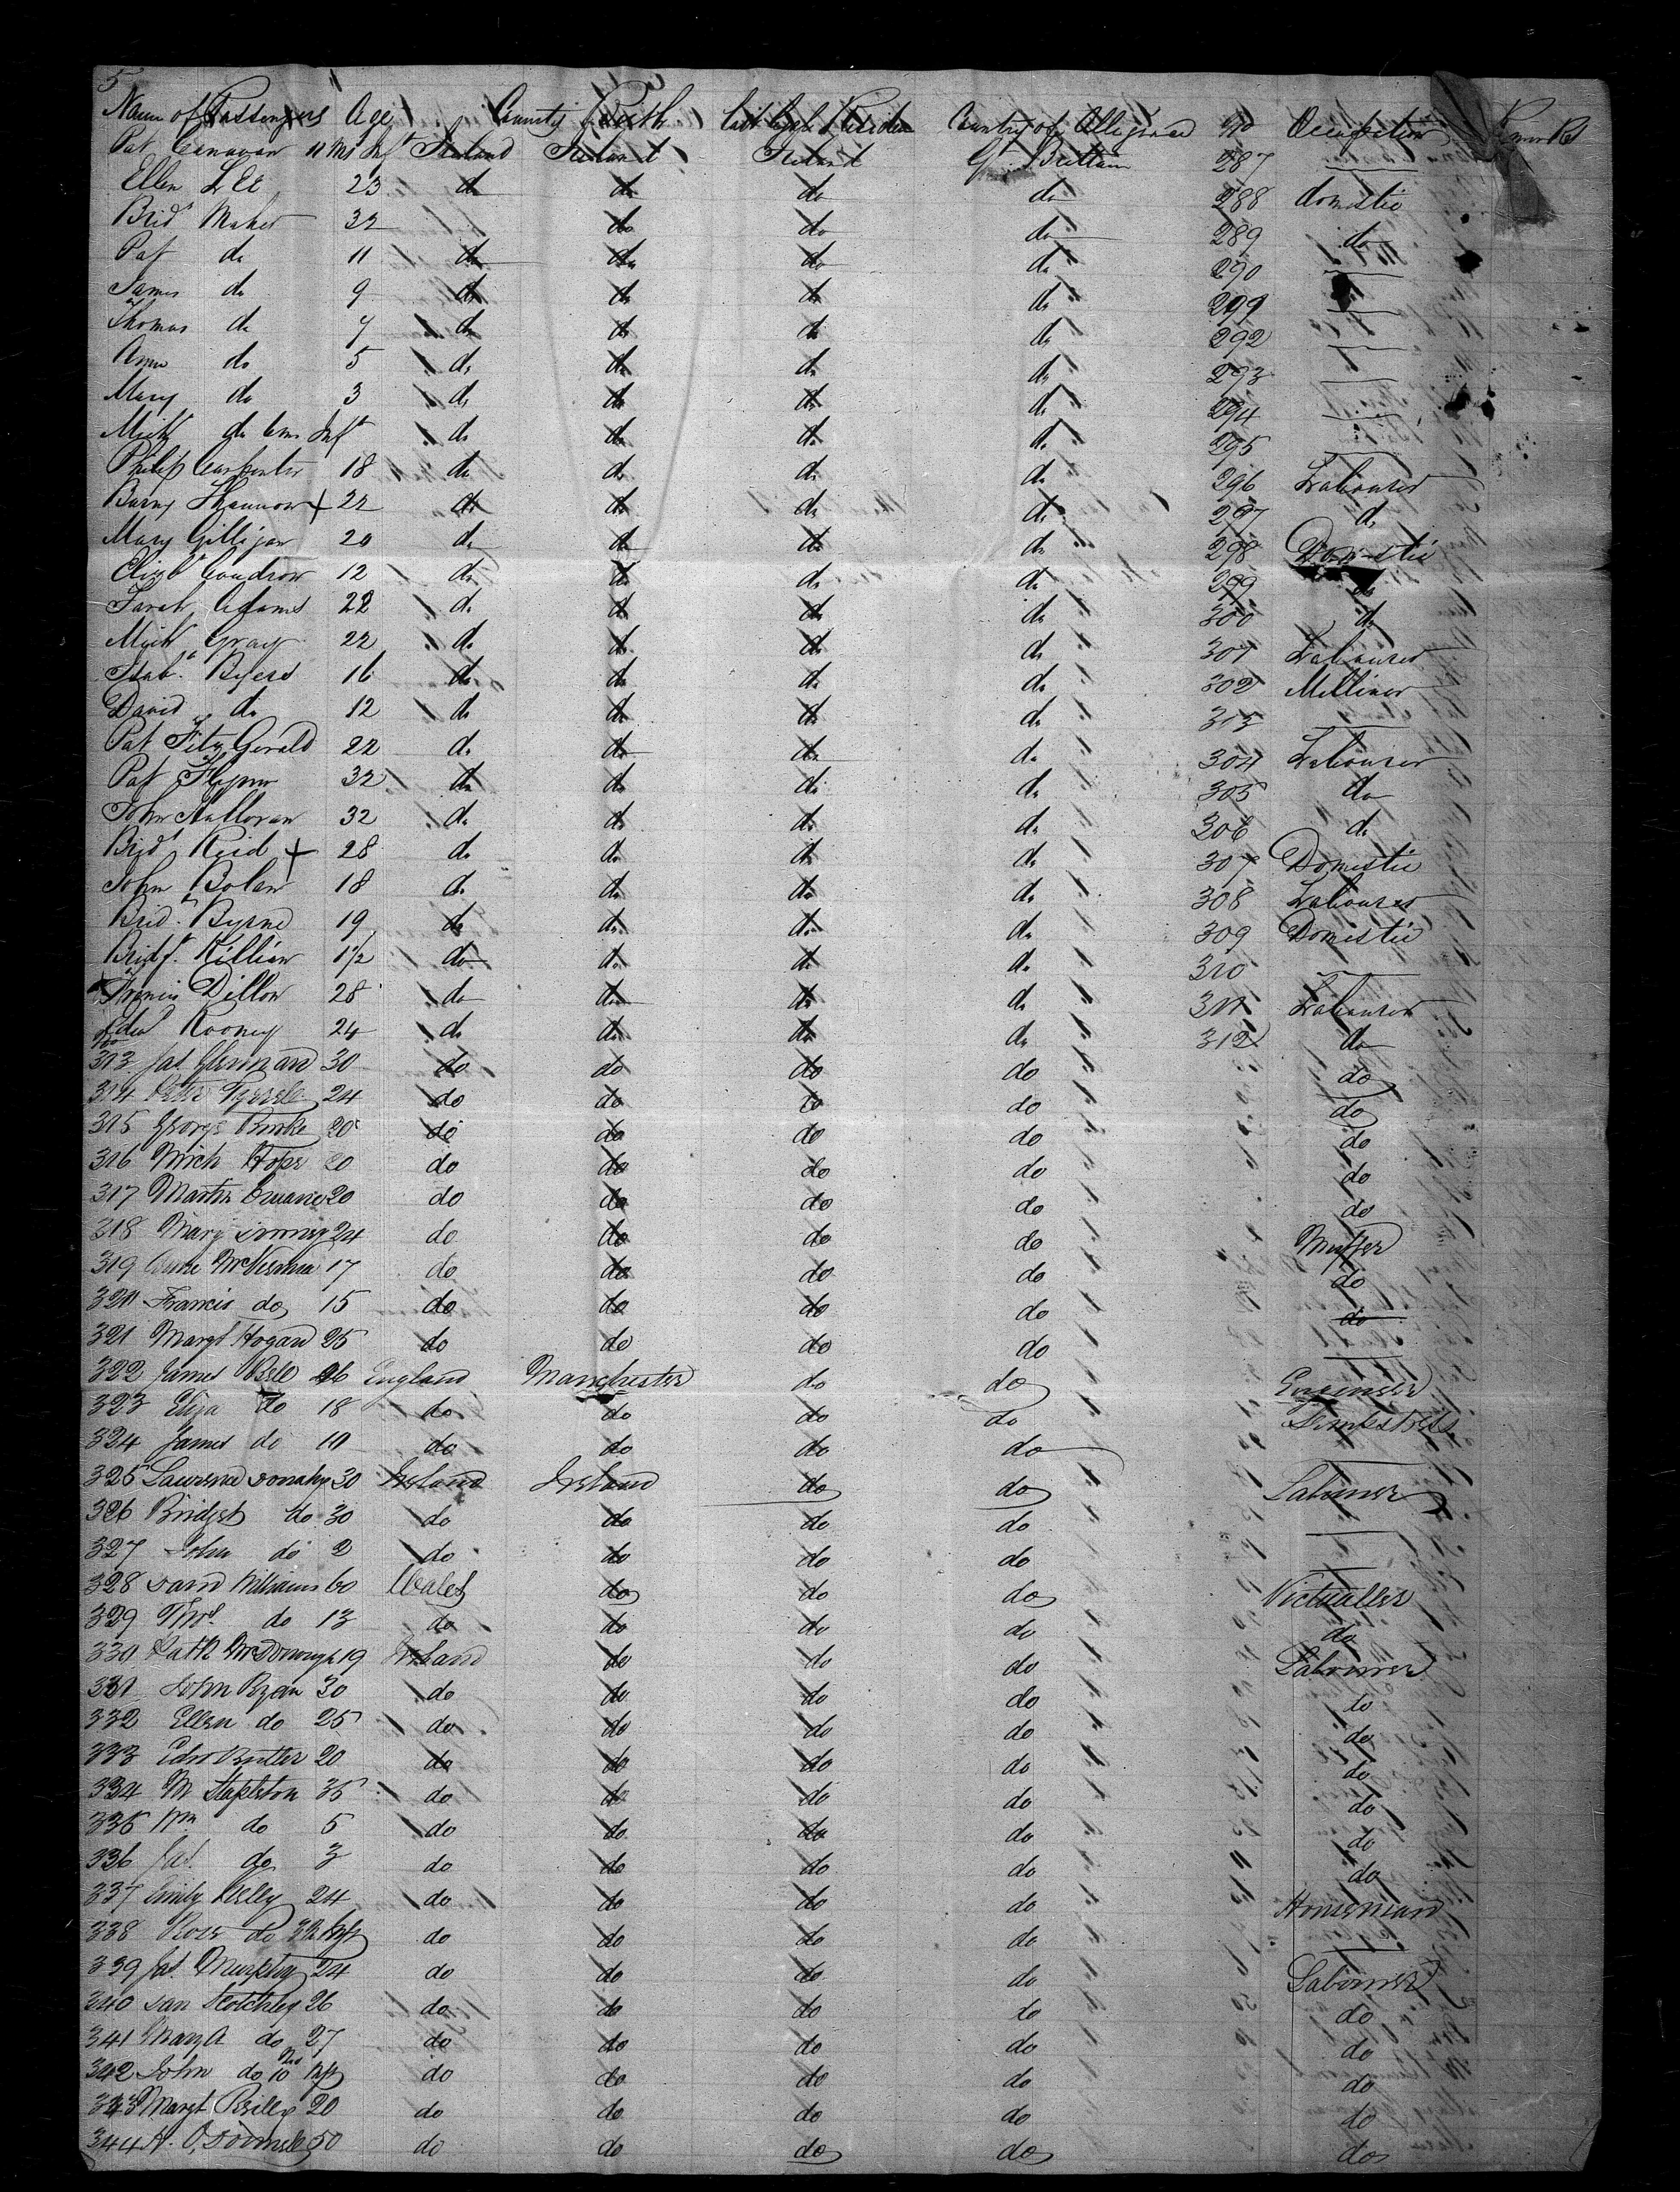 5
Name of Passengers Age County Birth Last Residen Country of Allegiance No Occupation
Pat Canavan 11 Ms Inft Ireland Ireland Ireland Gt Brittain 287
Ellen Lee 23 do do do do 288 domestic
Bridt Maher 32 do do do 289 do
Pat do 11 do do do do 290
James do 9 do do do do 291
Thomas do 7 do do do do 292
Ann do 5 do do do do 293
Mary do 3 do do do do 294
Michl do 6 ms Inft do do do do 295
Philip Carpenter 18 do do do do 296 Labourer
Barny Shannon + 22 do do do do 297 do
Mary Gilligan 20 do do do do 298 Domestic
Elizbt 12 do do do do 299 do
Sarah Adams 22 do do do do 300 do
Michl Gray 22 do do do do 301 Labourer
Isab. Byers 16 do do do do 302 Milliner
David do 12 do do do do 303
Pat Fitz Gerald 22 do do do do 304 Labourer
Pat Flynn 32 do do do do 305 do
John Halloran 32 do do do do 306 do
Bridt Reid + 28 do do do do 307 Domestic
John Bolan 18 do do do do 308 Labourer
Brid. Byrne 19 do do do do 309 Domestic
Bridgt. Killian 1 1/2 do do do do 310
Francis Dillon 28 do do do do 311 Labourer
Edwd Rooney 24 do do do do 312 do
313 Jas 30 do do do do do
314 Peter Tyrrele 24 do do do do do
315 George Burke 20 do do do do do
316 Mich Hope 20 do do do do do
317 Martin 20 do do do do do
318 Mary 24 do do do do
319 17 do do do do do
320 Francis do 15 do do do do do
321 Margt Hogan 25 do do do do
322 James 26 England Manchester do do Engineer
323 Eliza do 18 do do do do
324 James do 10 do do do do
325 Lawrence Donahy 30 Ireland Ireland do do Labourer
326 Bridget do 30 do do do do
327 John do 2 do do do do
328 David Williams 60 Wales do do do Victualler
329 Thos. do 13 do do do do do
330 Path McDonough 19 Ireland do do do Labourer
331 John Ryan 30 do do do do do
332 Ellen do 25 do do do do do
333 Edw Butler 20 do do do do do
334 M Stapleton 35 do do do do do
335 Wm do 5 do do do do do
336 Jas. do 3 do do do do do
337 Emily Kelly 24 do do do do Housemaid
338 Rose do Inft do do do do
339 Jas. Murphy 24 do do do do Labourer
340 Dan Scotchley 26 do do do do do
341 Mary A do 27 do do do do do
342 John do 10 Mos Inft do do do do do
343 Margt Reilly 20 do do do do do
344 A. O, Donnele 50 do do do do do